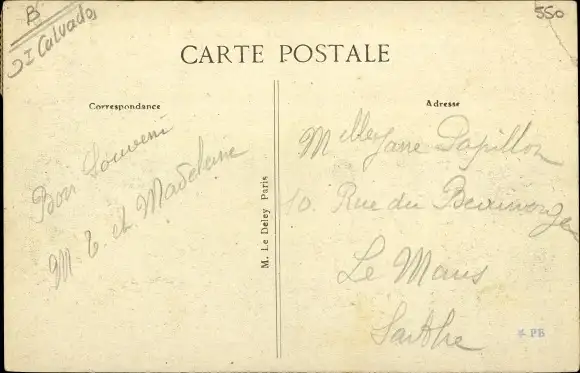 B
I Calvados
550
CARTE POSTALE
Correspondance
Adresse
Bon Souvenir
M. T. et Madeleine
M. Le Deley Paris
Mlle Jane Papillon
10. Rue du
Le Mans
Sarthe
* PB